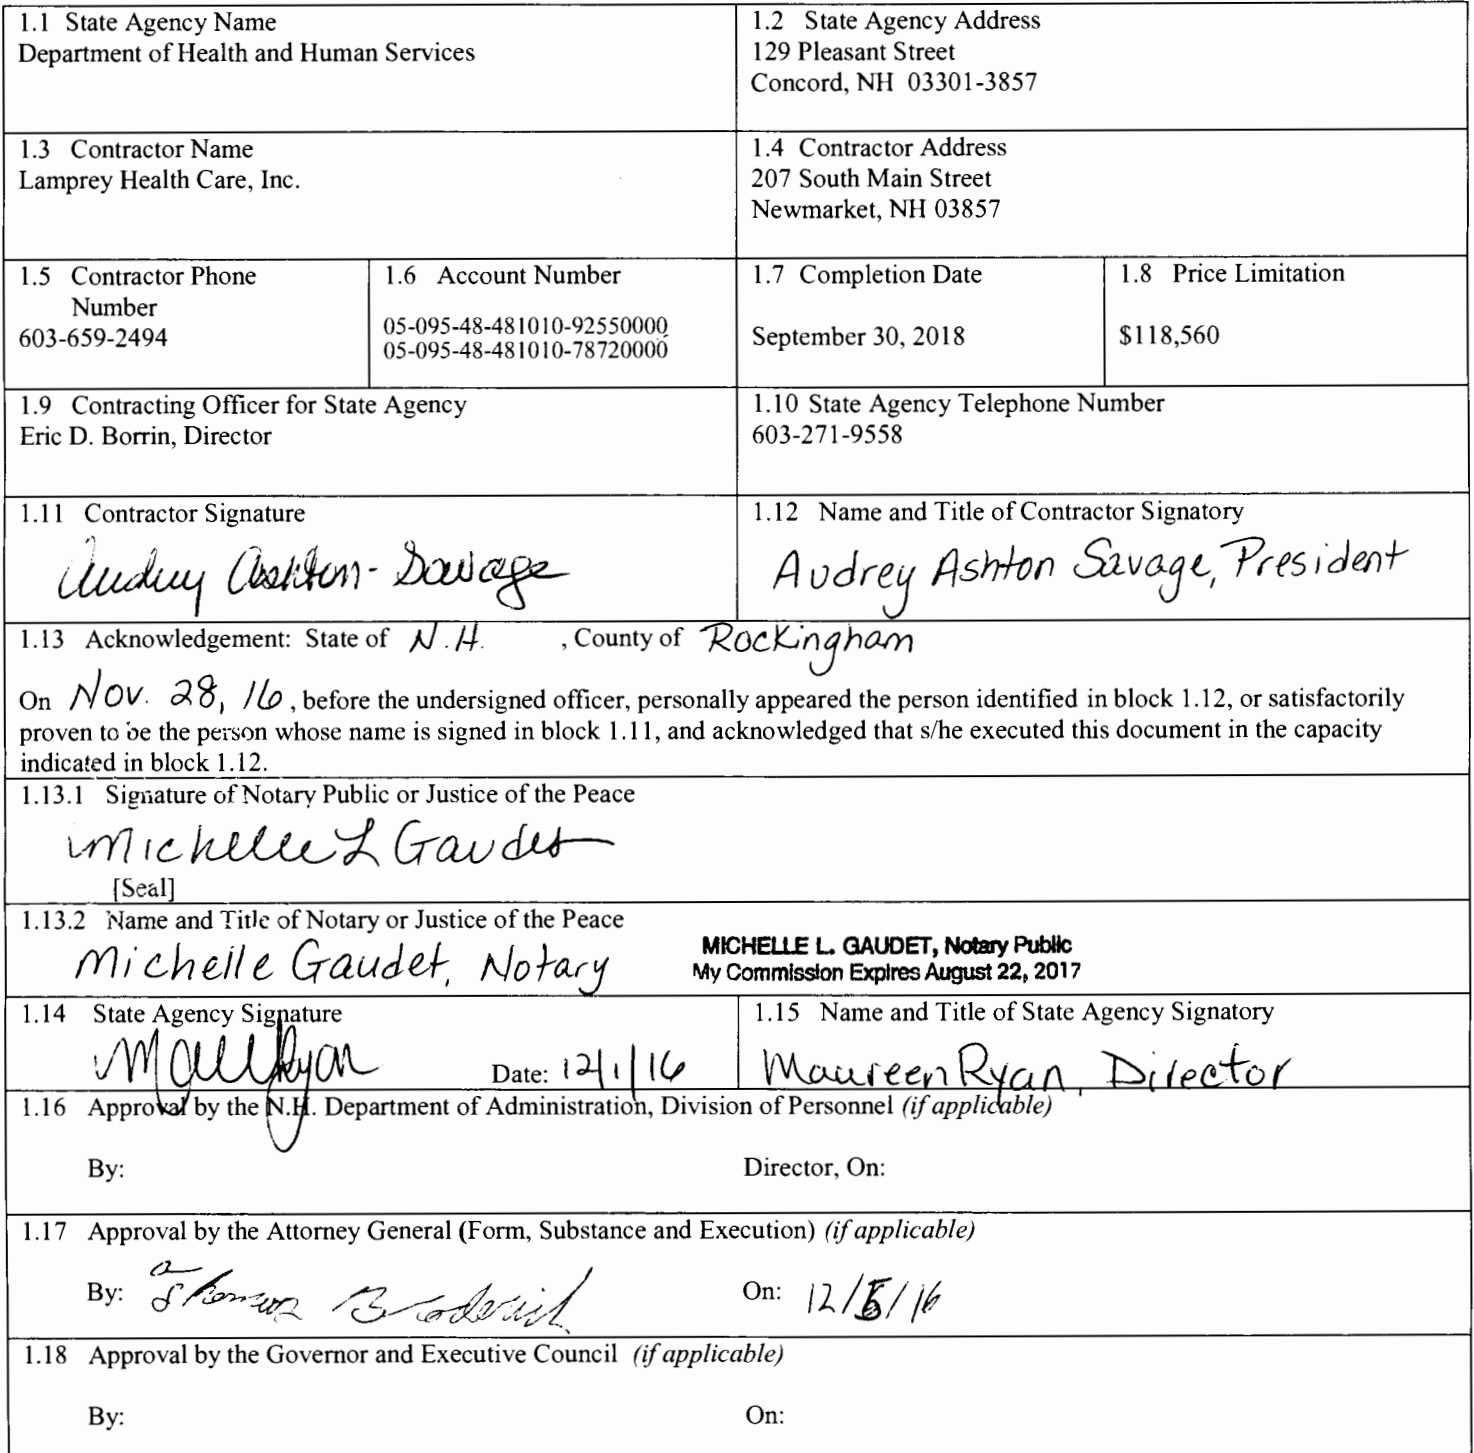 1.1 State Agency Name
Department of Health and Human Services
1.2 State Agency Address
129 Pleasant Street
Concord, NH 03301-3857
1.3 Contractor Name
Lamprey Health Care, Inc.
1.4 Contractor Address
207 South Main Street
Newmarket, NH 03857
1.5 Contractor Phone
Number
603-659-2494
1.6 Account Number
05-095-48-481010-92550000
05-095-48-481010-78720000
1.7 Completion Date
September 30, 2018
1.8 Price Limitation
$118,560
1.9 Contracting Officer for State Agency
Eric D. Borrin, Director
1.10 State Agency Telephone Number
603-271-9558
1.11 Contractor Signature
Audrey Ashton-Savage
1.12 Name and Title of Contractor Signatory
Audrey Ashton Savage, President
1.13 Acknowledgement: State of N.H. , County of Rockingham
On Nov. 28, 16, before the undersigned officer, personally appeared the person identified in block 1.12, or satisfactorily
proven to be the person whose name is signed in block 1.11, and acknowledged that s/he executed this document in the capacity
indicated in block 1.12.
1.13.1 Signature of Notary Public or Justice of the Peace
Michelle L Gaudet
[Seal]
1.13.2 Name and Title of Notary or Justice of the Peace
Michelle Gaudet, Notary
MICHELLE L. GAUDET, Notary Public
My Commission Expires August 22, 2017
1.14 State Agency Signature
Date: 12/1/16
1.15 Name and Title of State Agency Signatory
Maureen Ryan, Director
1.16 Approval by the N.H. Department of Administration, Division of Personnel (if applicable)
By:
Director, On:
1.17 Approval by the Attorney General (Form, Substance and Execution) (if applicable)
By:
On: 12/5/16
1.18 Approval by the Governor and Executive Council (if applicable)
By:
On: